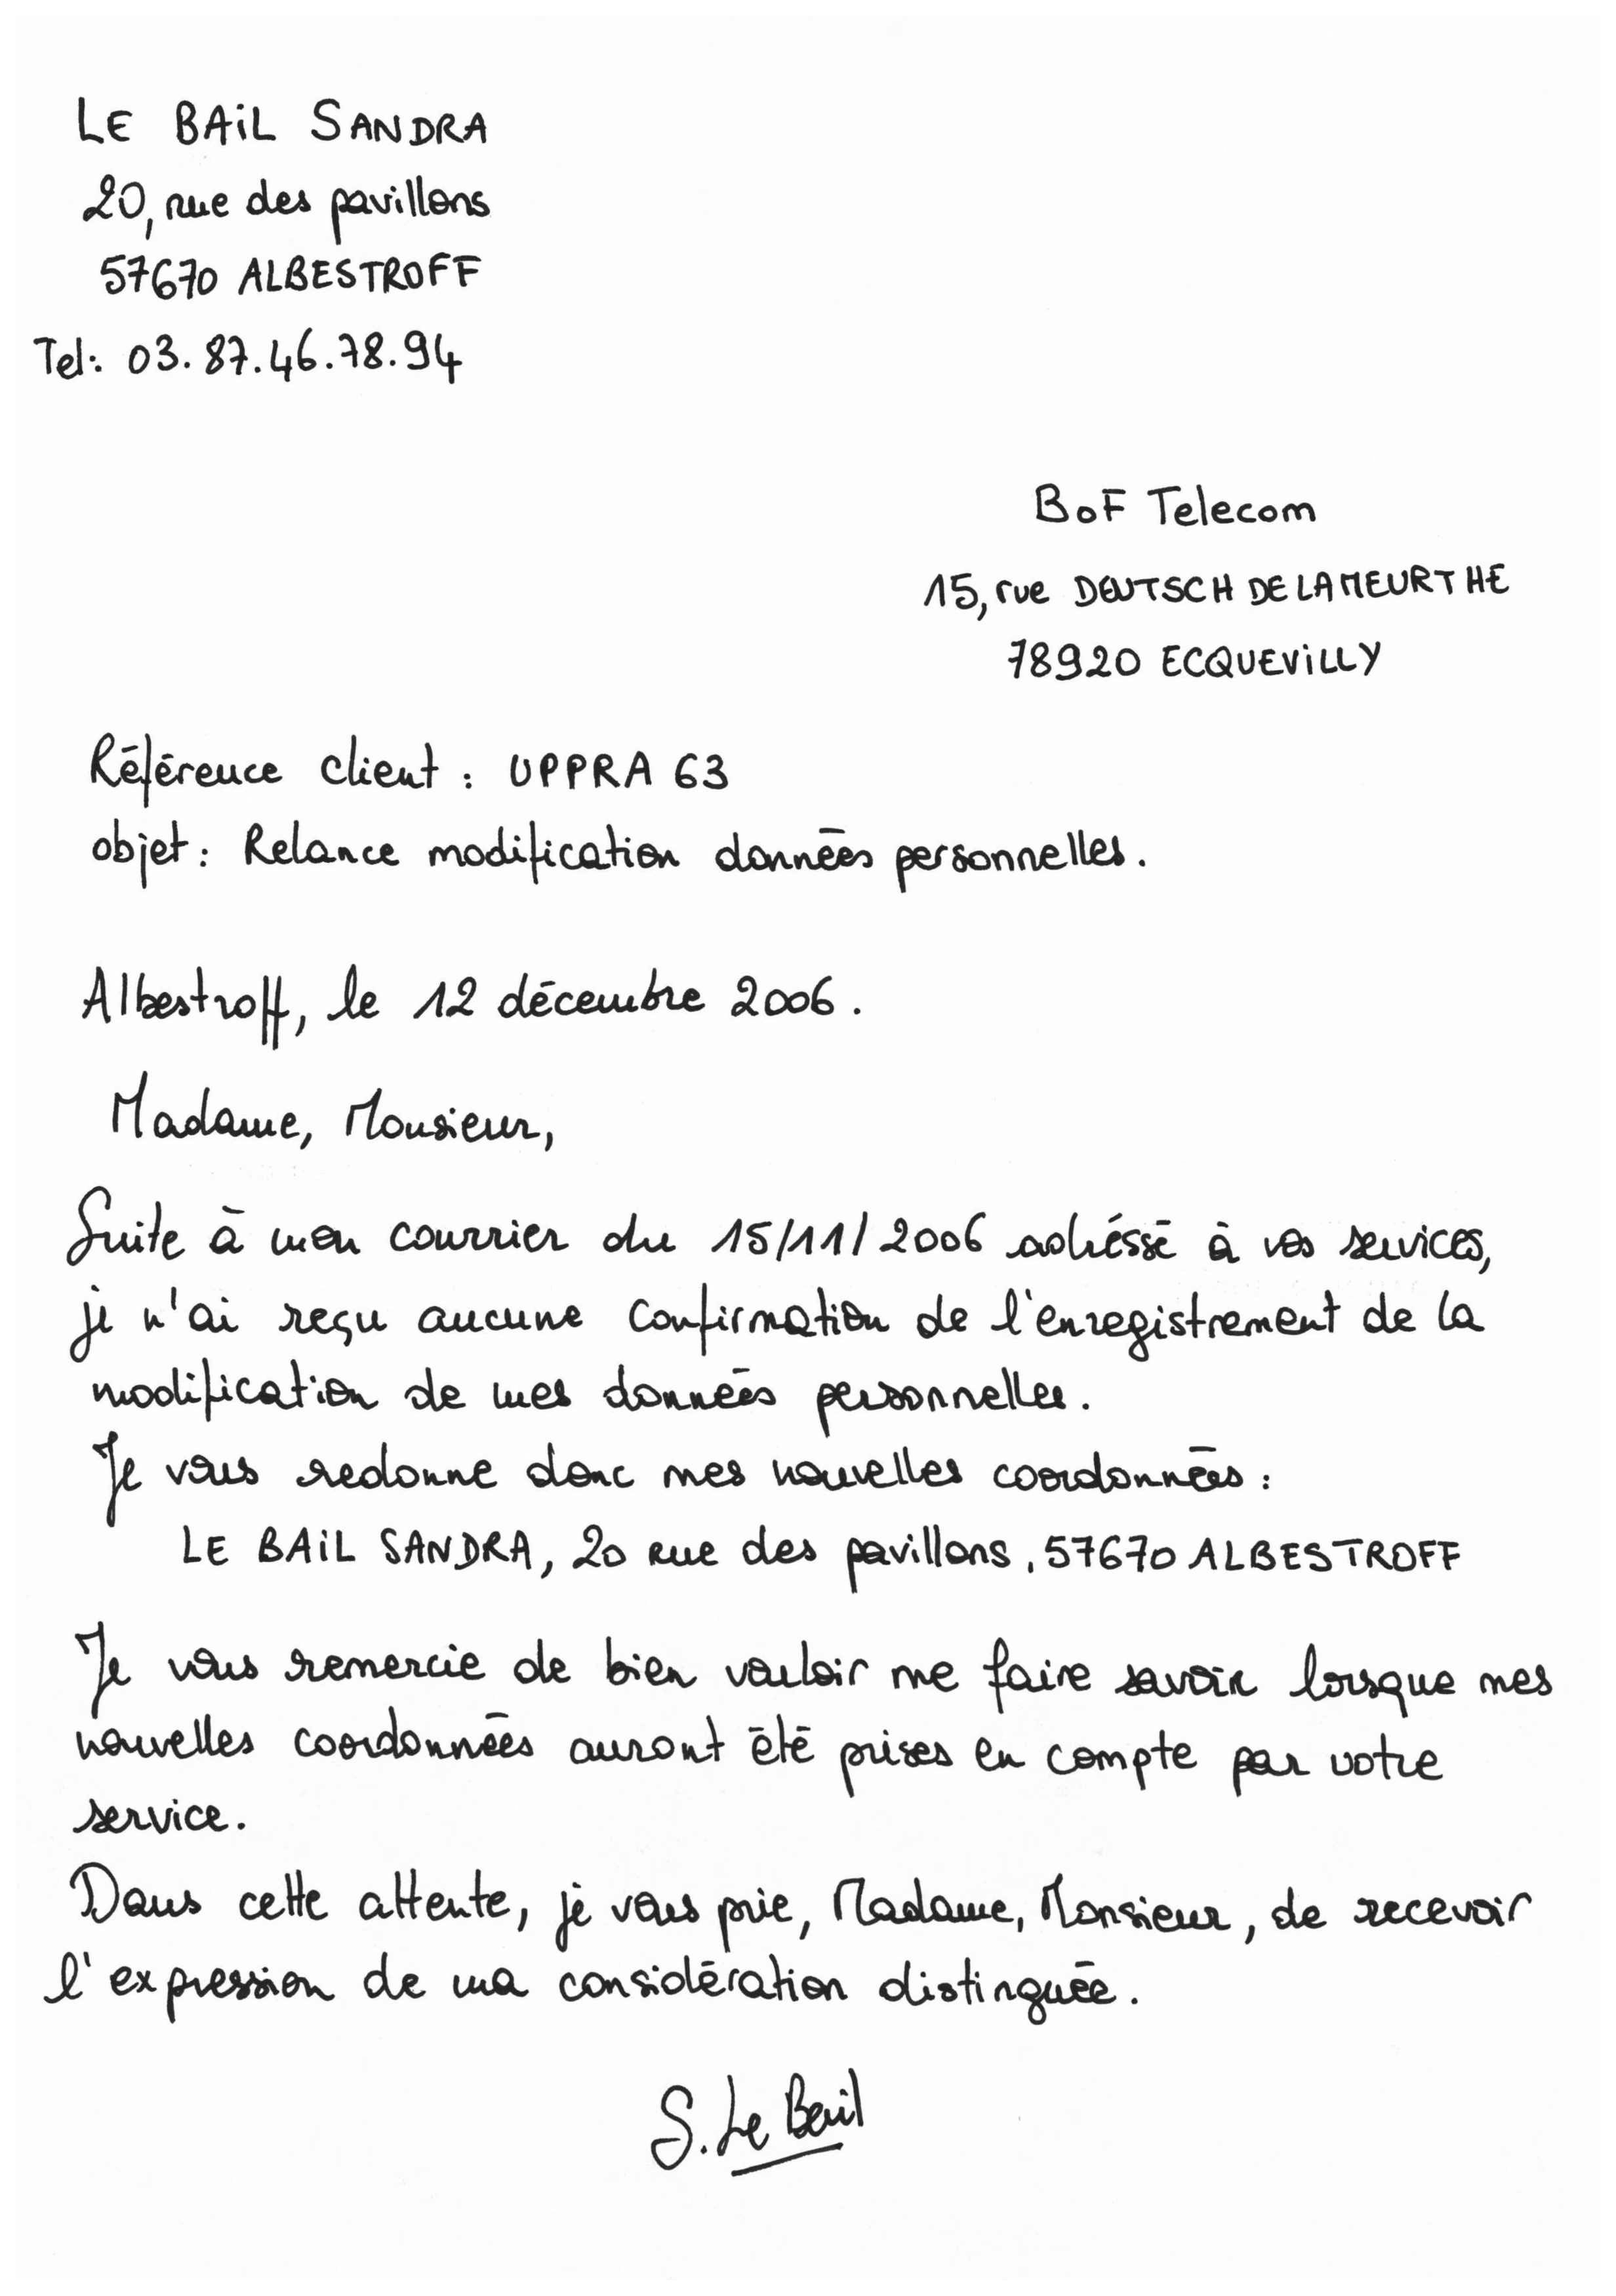 LE BAiL SANDRA
20, rue des pavillons
57670 ALBESTROFF
Tel: 03.87.46.78.94
BoF Telecom
15, rue DEUTSCH DE LA MEURTHE
78920 ECQUEViLLY
Référence client : UPPRA 63
objet : Relance modification données personnelles.
Albestroff, le 12 décembre 2006.
Madame, Monsieur,
Suite à mon courrier du 15/11/2006 adréssé à vos services,
je n'ai reçu aucune confirmation de l'enregistrement de la
modification de mes données personnelles.
Je vous redonne donc mes nouvelles coordonnées :
LE BAiL SANDRA, 20 rue des pavillons, 57670 ALBESTROFF
Je vous remercie de bien vouloir me faire savoir lorsque mes
nouvelles coordonnées auront été prises en compte par votre
service.
Dans cette attente, je vous prie, Madame, Monsieur, de recevoir
l'expression de ma considération distinguée.
S. Le Bail